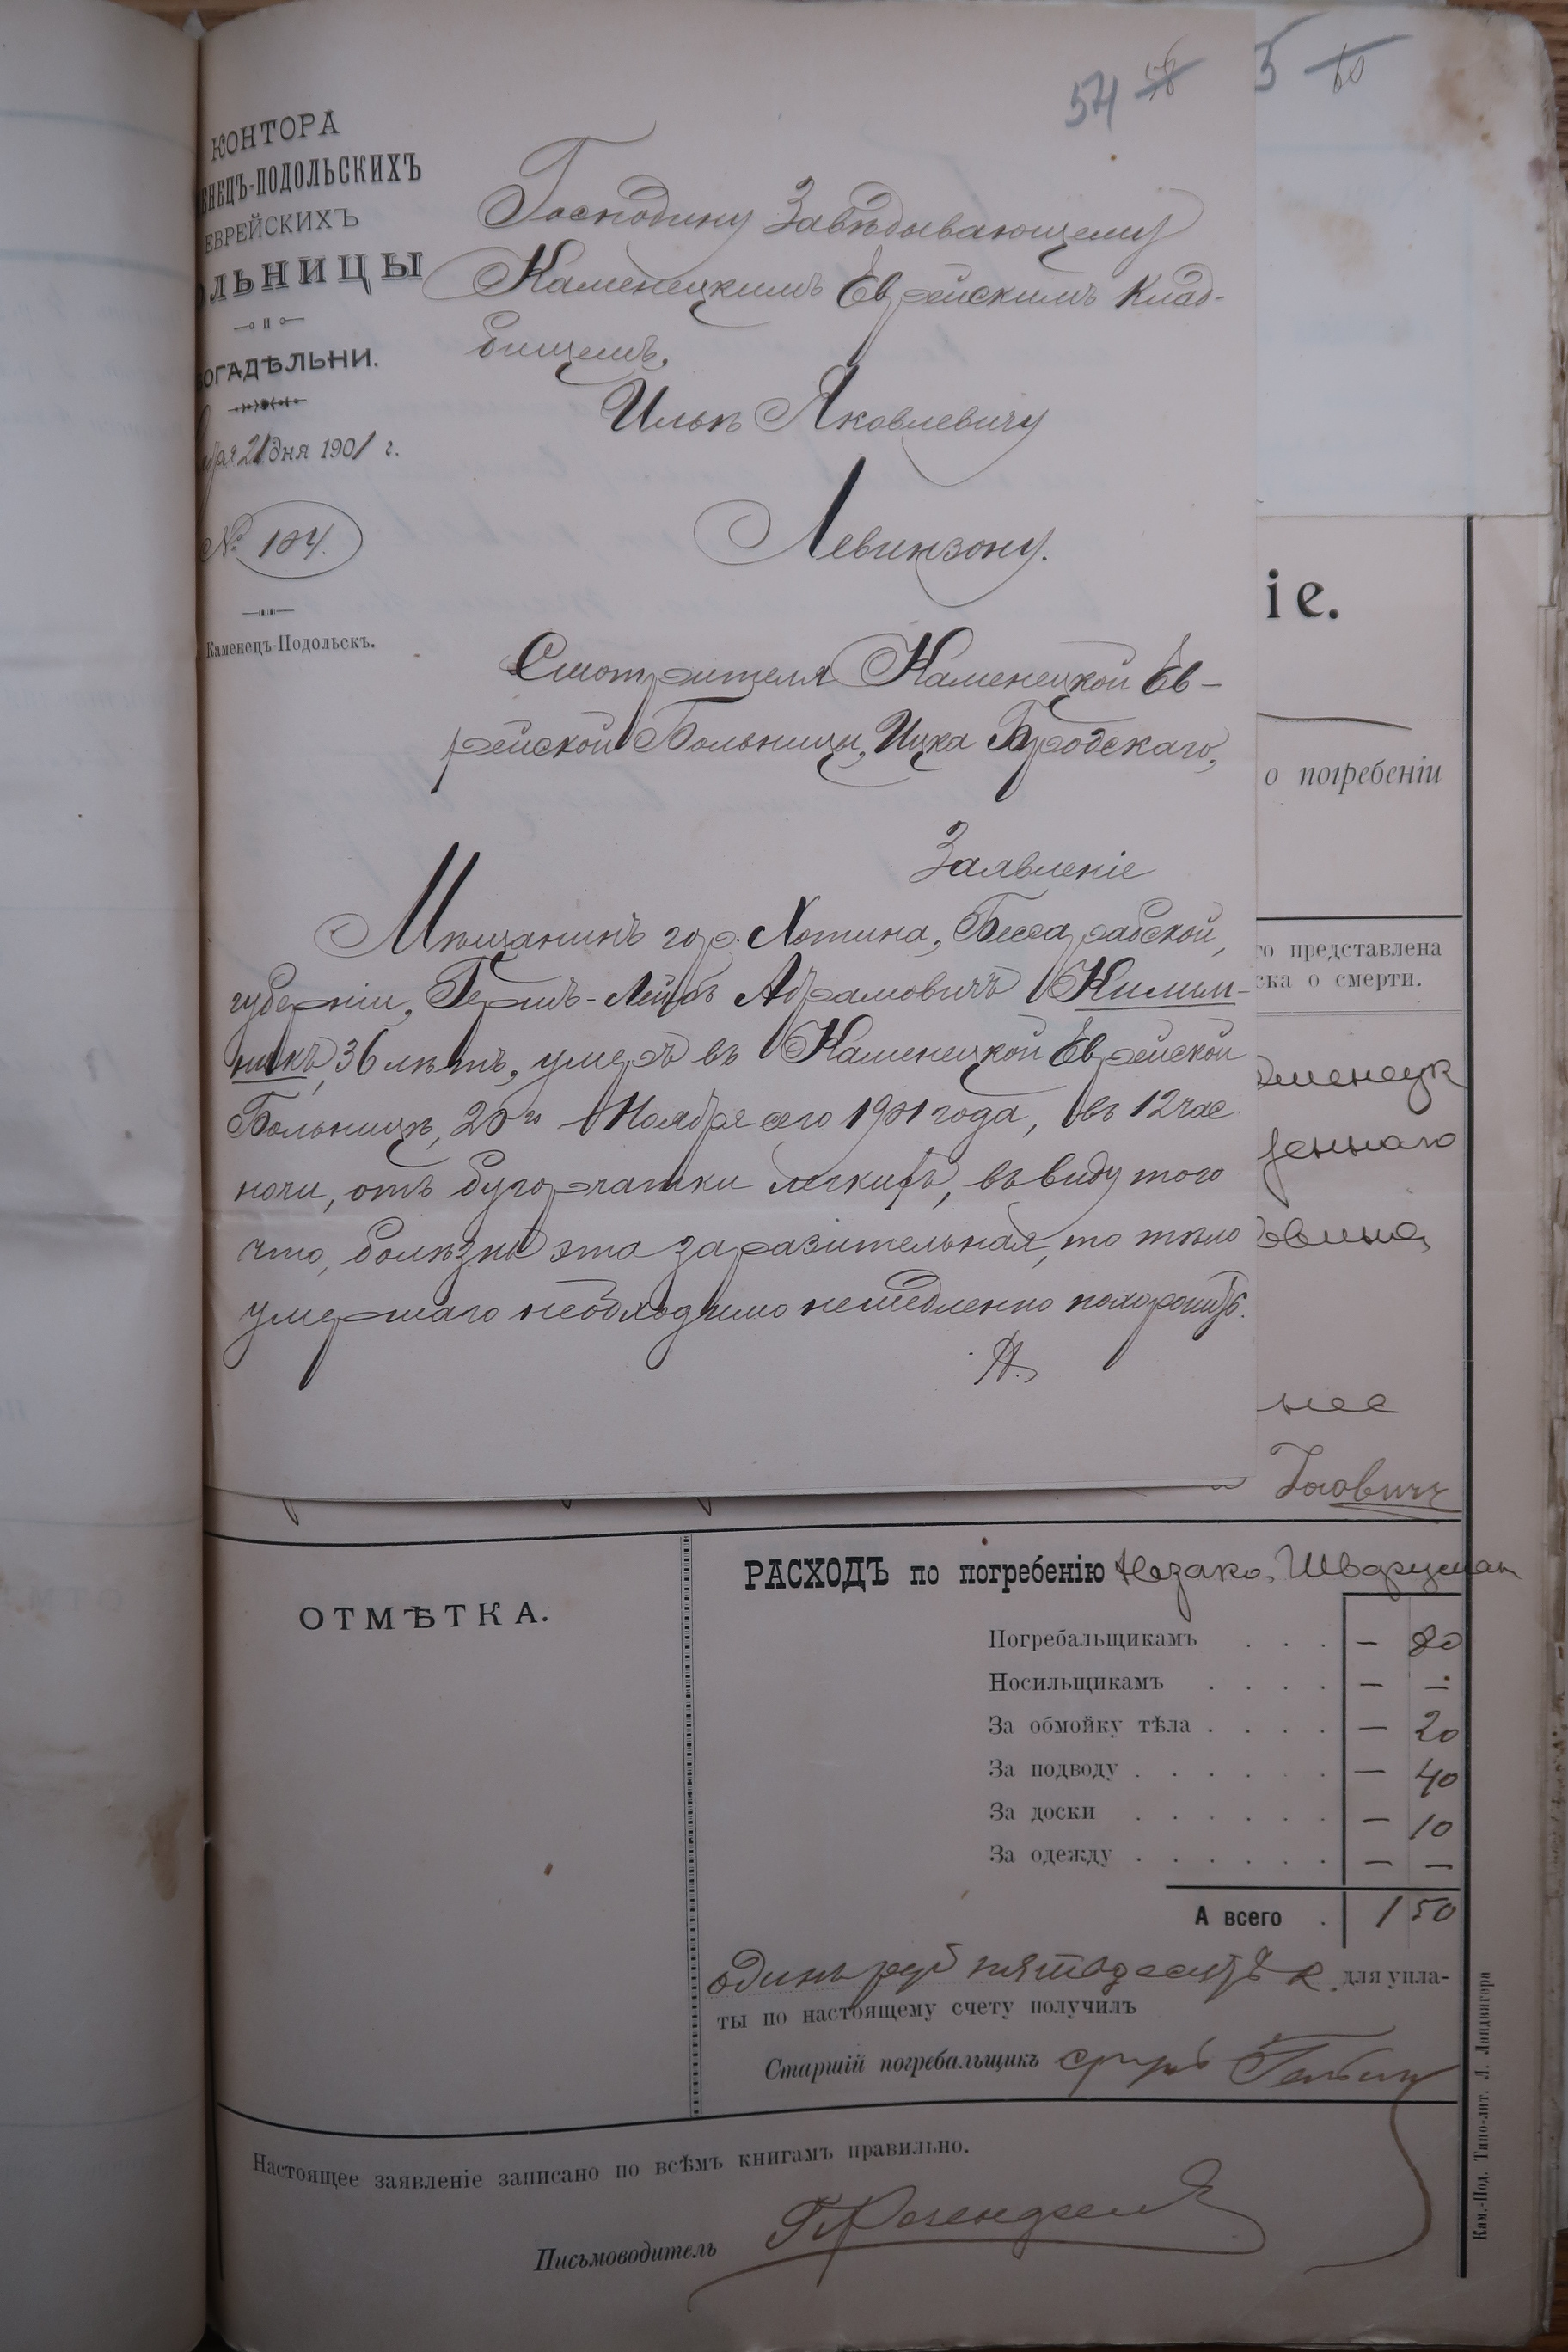 54 58
5 60
КОНТОРА
ЕНЕЦЪ-ПОДОЛЬСКИХЪ
ЕВРЕЙСКИХЪ
ОЛЬНИЦЫ
ОГАДѢЛЬНИ.
ября 21 дня 1901 г.
№ 104.
Каменецъ-Подольскъ.
Господину Завѣдывающему
Каменецкимъ Еврейскимъ Клад-
бищемъ,
Ильѣ Яковлевичу
Левинзону.
Смотрителя Каменецкой Ев-
рейской Больницы, Ицка Бродскаго,
Заявленіе
Мѣщанинъ гор. Хотина, Бессарабской
губерніи, Гершъ-Лейбъ Абрамовичъ Килим-
никъ, 36 лѣтъ, умеръ въ Каменецкой Еврейской
Больницѣ, 20го Ноября сего 1901 года, въ 12 час.
ночи, отъ бугорчатки легкихъ, въ виду того
что, болѣзнь эта заразительная, то тѣло
умершаго необходимо немедленно похоронить.
іе.
о погребеніи
го представлена
ска о смерти.
аменецк
веннаго
нее
РАСХОДЪ по погребенію Незако. Шварцман
ОТМѢТКА.
Погребальщикамъ . . . — 80
Носильщикамъ . . . . — —
За обмойку тѣла . . . . — 20
За подводу . . . . . . — 40
За доски . . . . . . — 10
За одежду . . . . . . — —
А всего . 1 50
одинъ руб пятьдесятъ к. для упла-
ты по настоящему счету получилъ
Старшій погребальщикъ
Настоящее заявленіе записано по всѣмъ книгамъ правильно.
Письмоводитель
Кам.-Под. Типо-лит. Л. Ландвигера